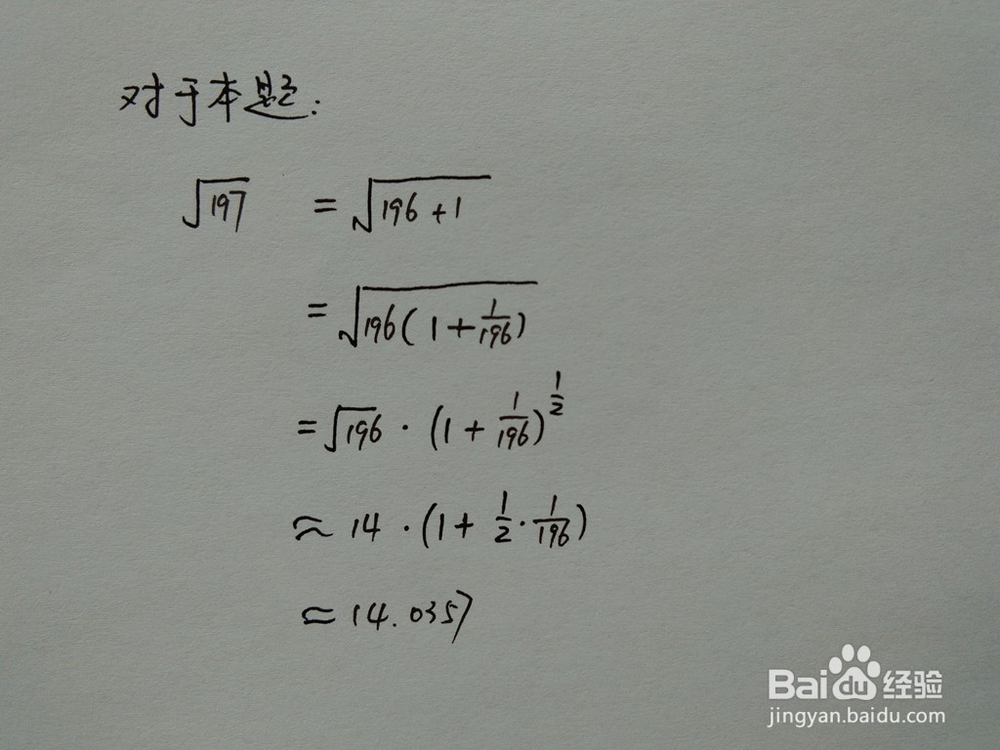 对于本题:
√197 = √(196+1)
= √(196(1+1/196))
= √196 · (1+1/196)^(1/2)
≈ 14 · (1+1/2·1/196)
≈ 14.0357
Baidu经验
jingyan.baidu.com